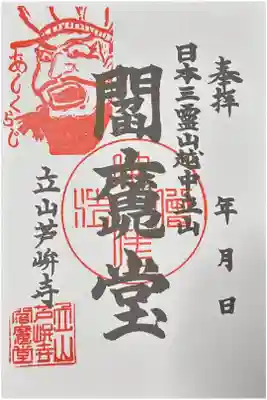 奉拝
年月日
日本三霊山越中立山
閻魔堂
立山芦峅寺
あしくらじ
立山
芦峅寺
閻魔堂